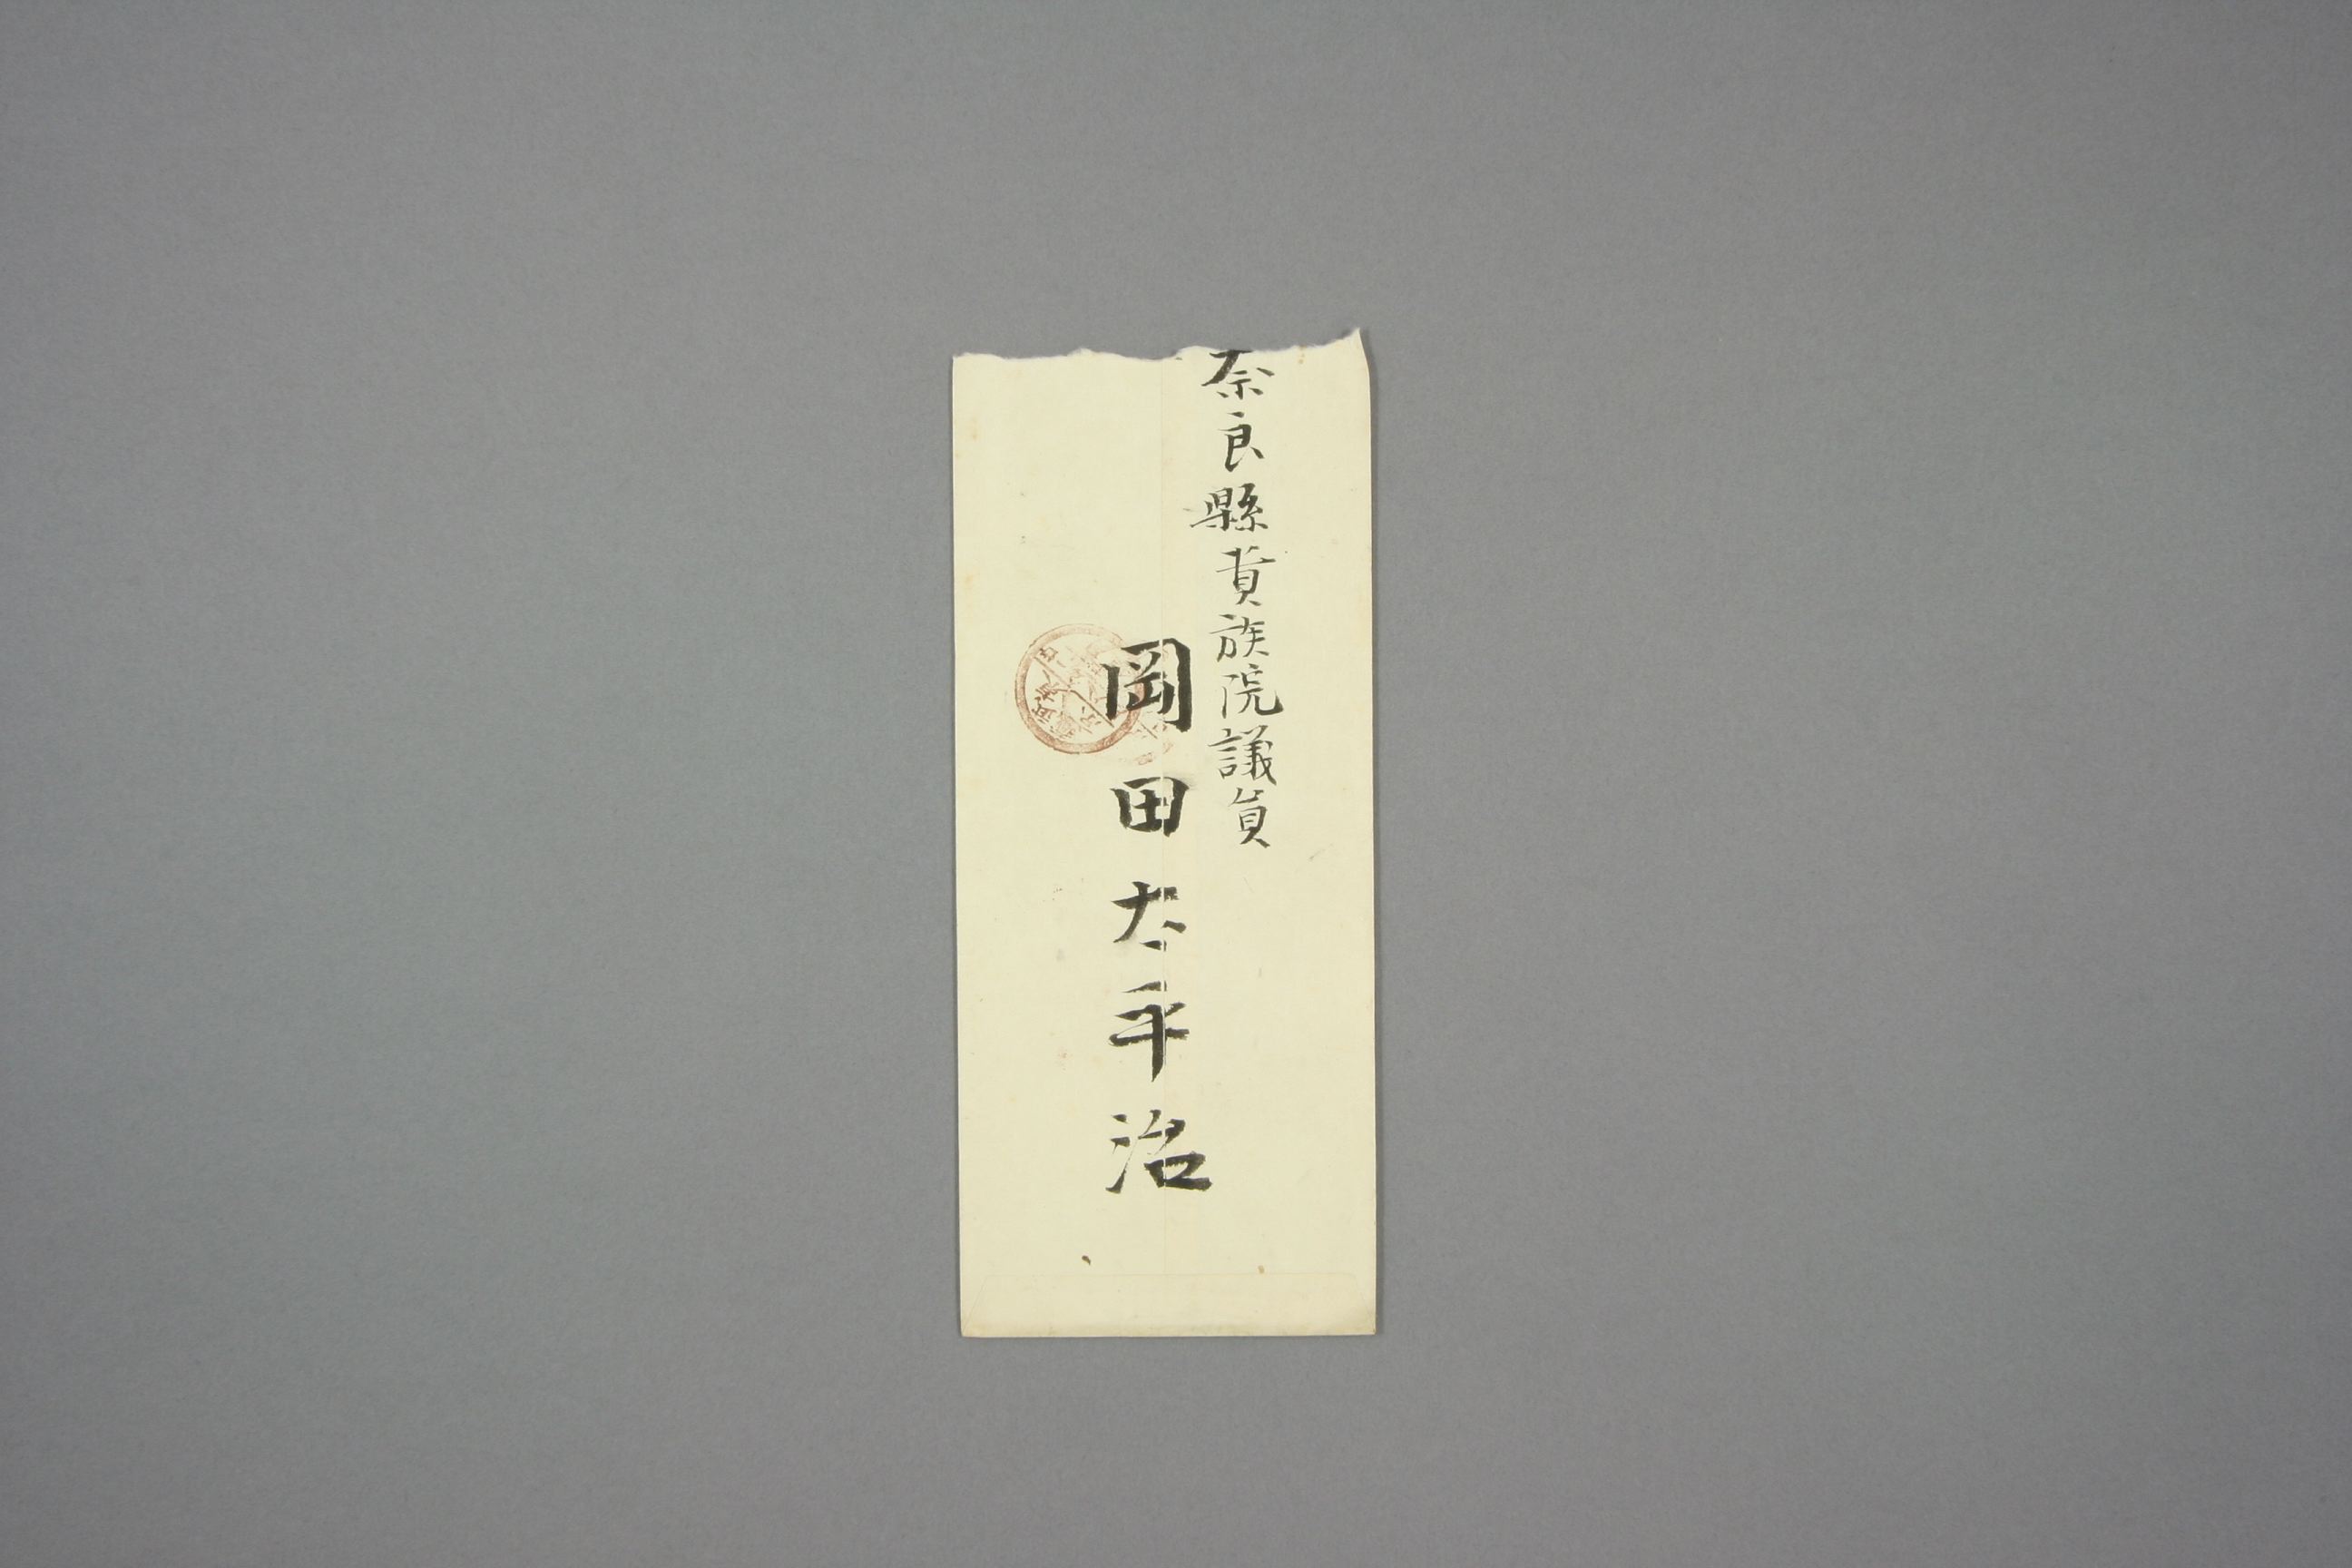 奈良縣貴族院議員
岡田太平治